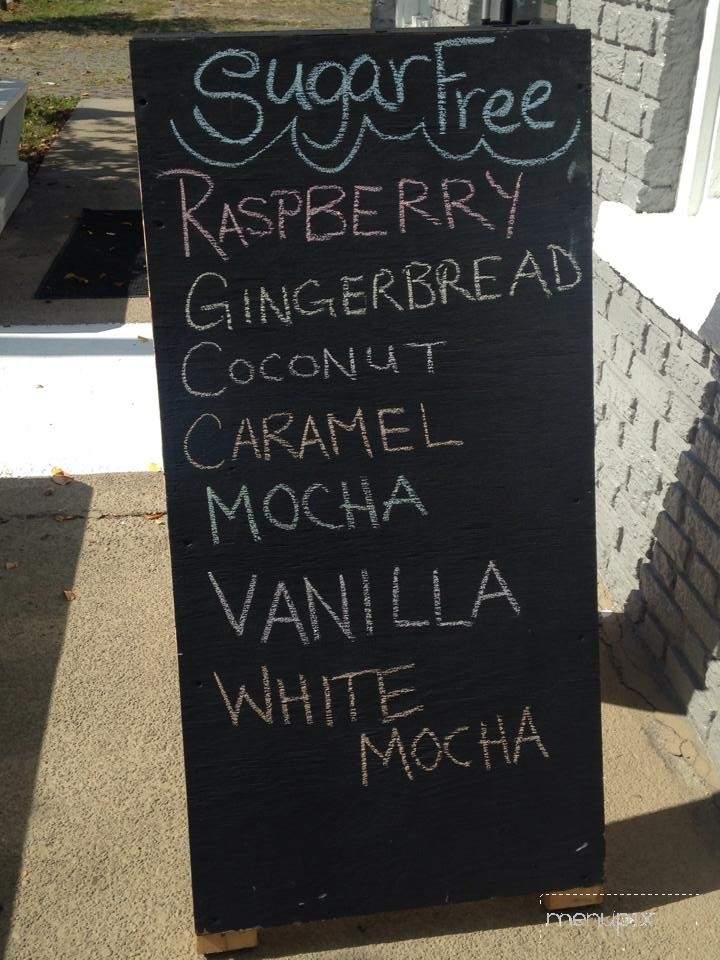 Sugar Free
RASPBERRY
GINGERBREAD
COCONUT
CARAMEL
MOCHA
VANILLA
WHITE
MOCHA
menupix